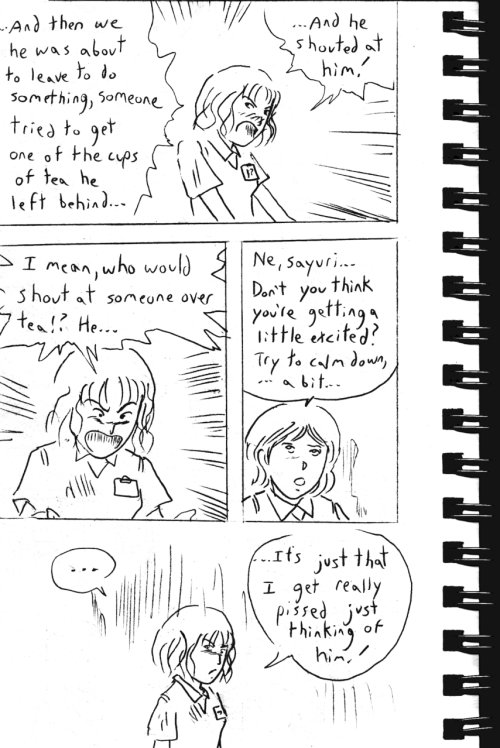 ..And then we
he was about
to leave to do
something, someone
tried to get
one of the cups
of tea he
left behind...
...And he
shouted at
him!
I mean, who would
shout at someone over
tea!? He...
Ne, sayuri...
Don't you think
you're getting a
little excited?
Try to calm down,
... a bit...
...
...It's just that
I get really
pissed just
thinking of
him!